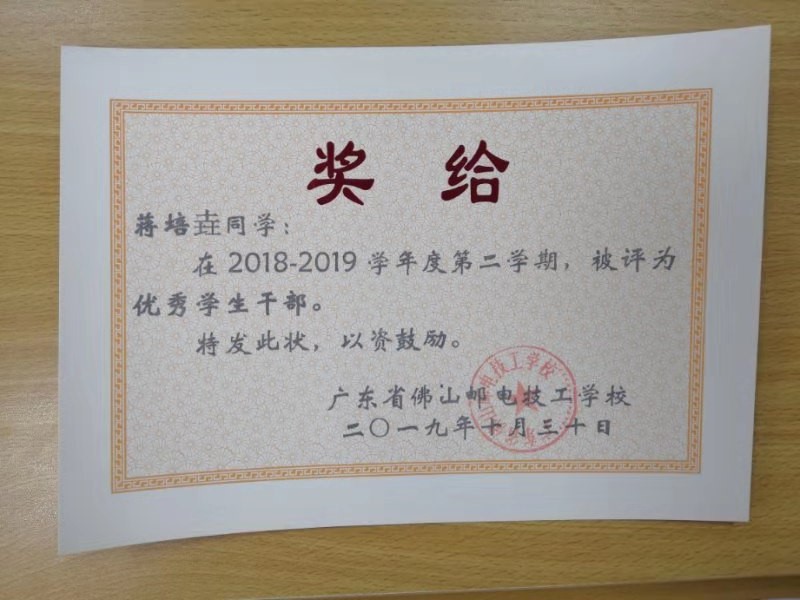 奖给
蒋培垚同学：
在2018-2019学年度第二学期，被评为
优秀学生干部。
特发此状，以资鼓励。
广东省佛山邮电技工学校
二〇一九年十月三十日